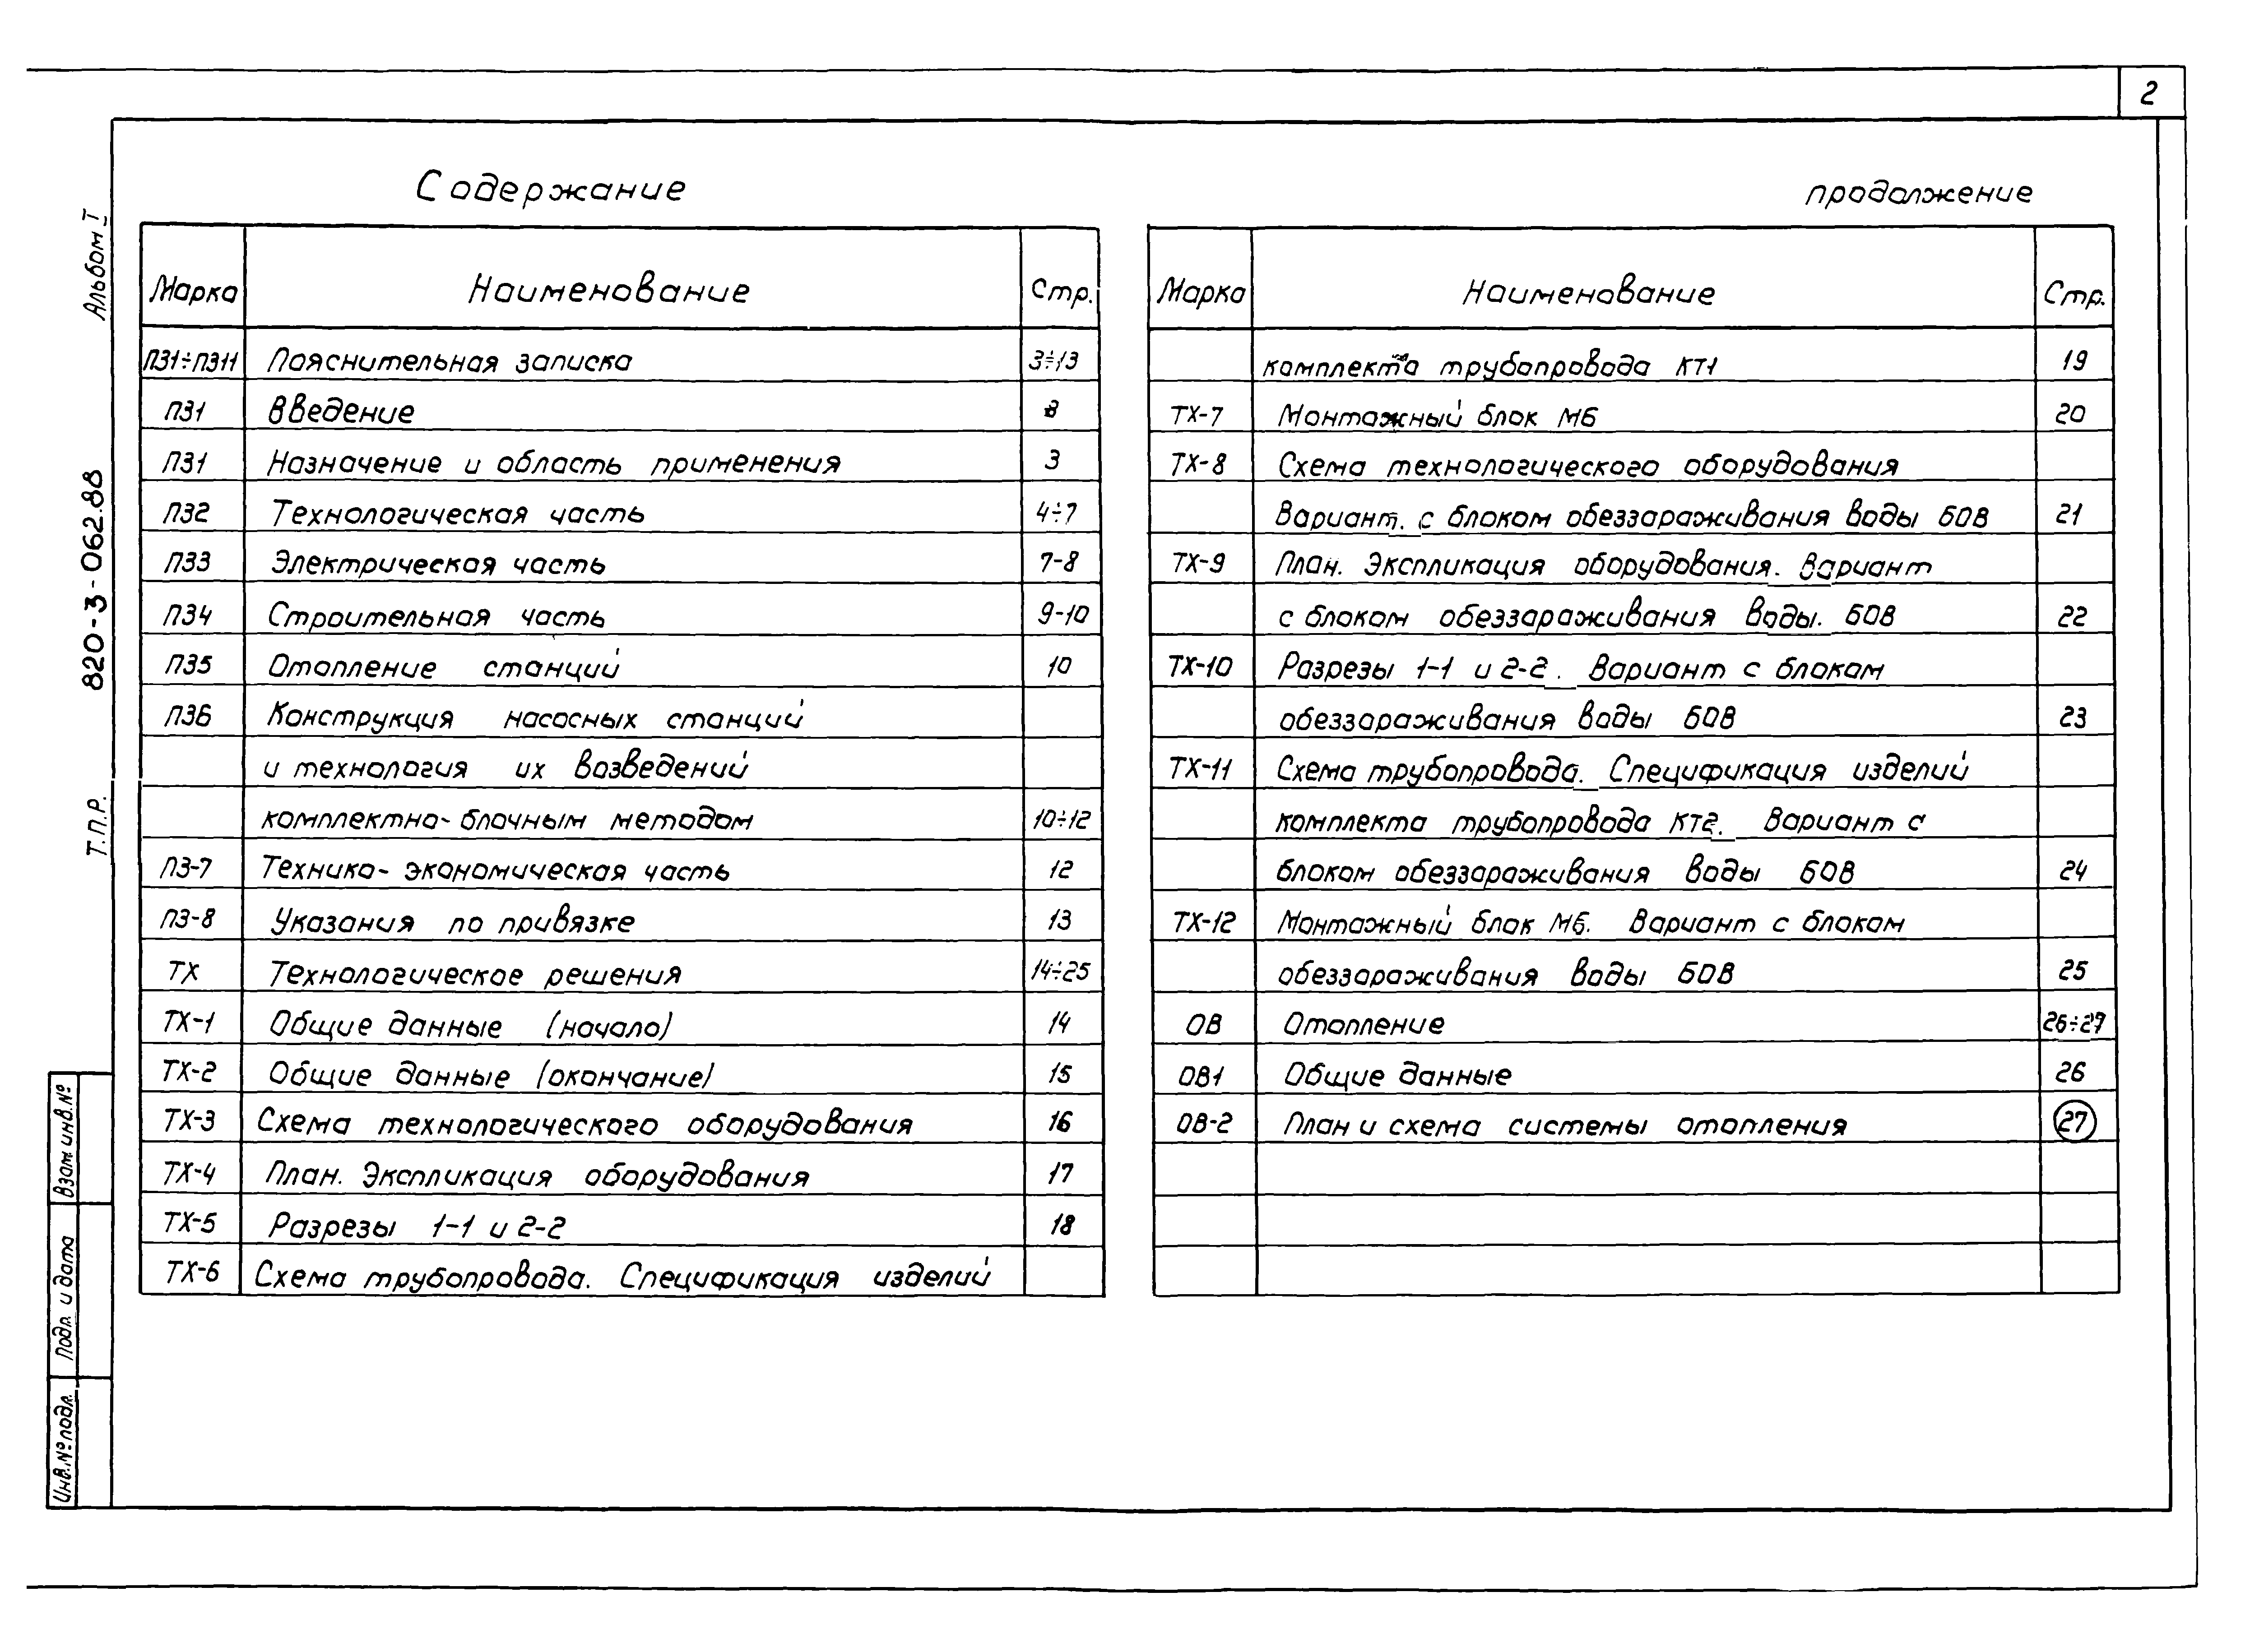 2
Содержание
Марка Наименование Стр.
ПЗ1÷ПЗ11 Пояснительная записка 3÷13
ПЗ1 Введение 3
ПЗ1 Назначение и область применения 3
ПЗ2 Технологическая часть 4÷7
ПЗ3 Электрическая часть 7-8
ПЗ4 Строительная часть 9-10
ПЗ5 Отопление станций 10
ПЗ6 Конструкция насосных станций
и технология их возведений
комплектно-блочным методом 10÷12
ПЗ-7 Технико-экономическая часть 12
ПЗ-8 Указания по привязке 13
ТХ Технологическое решения 14÷25
ТХ-1 Общие данные (начало) 14
ТХ-2 Общие данные (окончание) 15
ТХ-3 Схема технологического оборудования 16
ТХ-4 План. Экспликация оборудования 17
ТХ-5 Разрезы 1-1 и 2-2 18
ТХ-6 Схема трубопровода. Спецификация изделий
продолжение
Марка Наименование Стр.
комплекта трубопровода КТ1 19
ТХ-7 Монтажный блок МБ 20
ТХ-8 Схема технологического оборудования
Вариант. с блоком обеззараживания воды БОВ 21
ТХ-9 План. Экспликация оборудования. Вариант
с блоком обеззараживания воды. БОВ 22
ТХ-10 Разрезы 1-1 и 2-2. Вариант с блокам
обеззараживания воды БОВ 23
ТХ-11 Схема трубопровода. Спецификация изделий
комплекта трубопровода КТ2. Вариант с
блоком обеззараживания воды БОВ 24
ТХ-12 Монтажный блок МБ. Вариант с блокам
обеззараживания воды БОВ 25
ОВ Отопление 26÷27
ОВ1 Общие данные 26
ОВ-2 План и схема системы отопления 27
Альбом I
820-3-062.88
Т.П.Р.
Взам инв.№
Подп. и дата
Инв.№ подл.